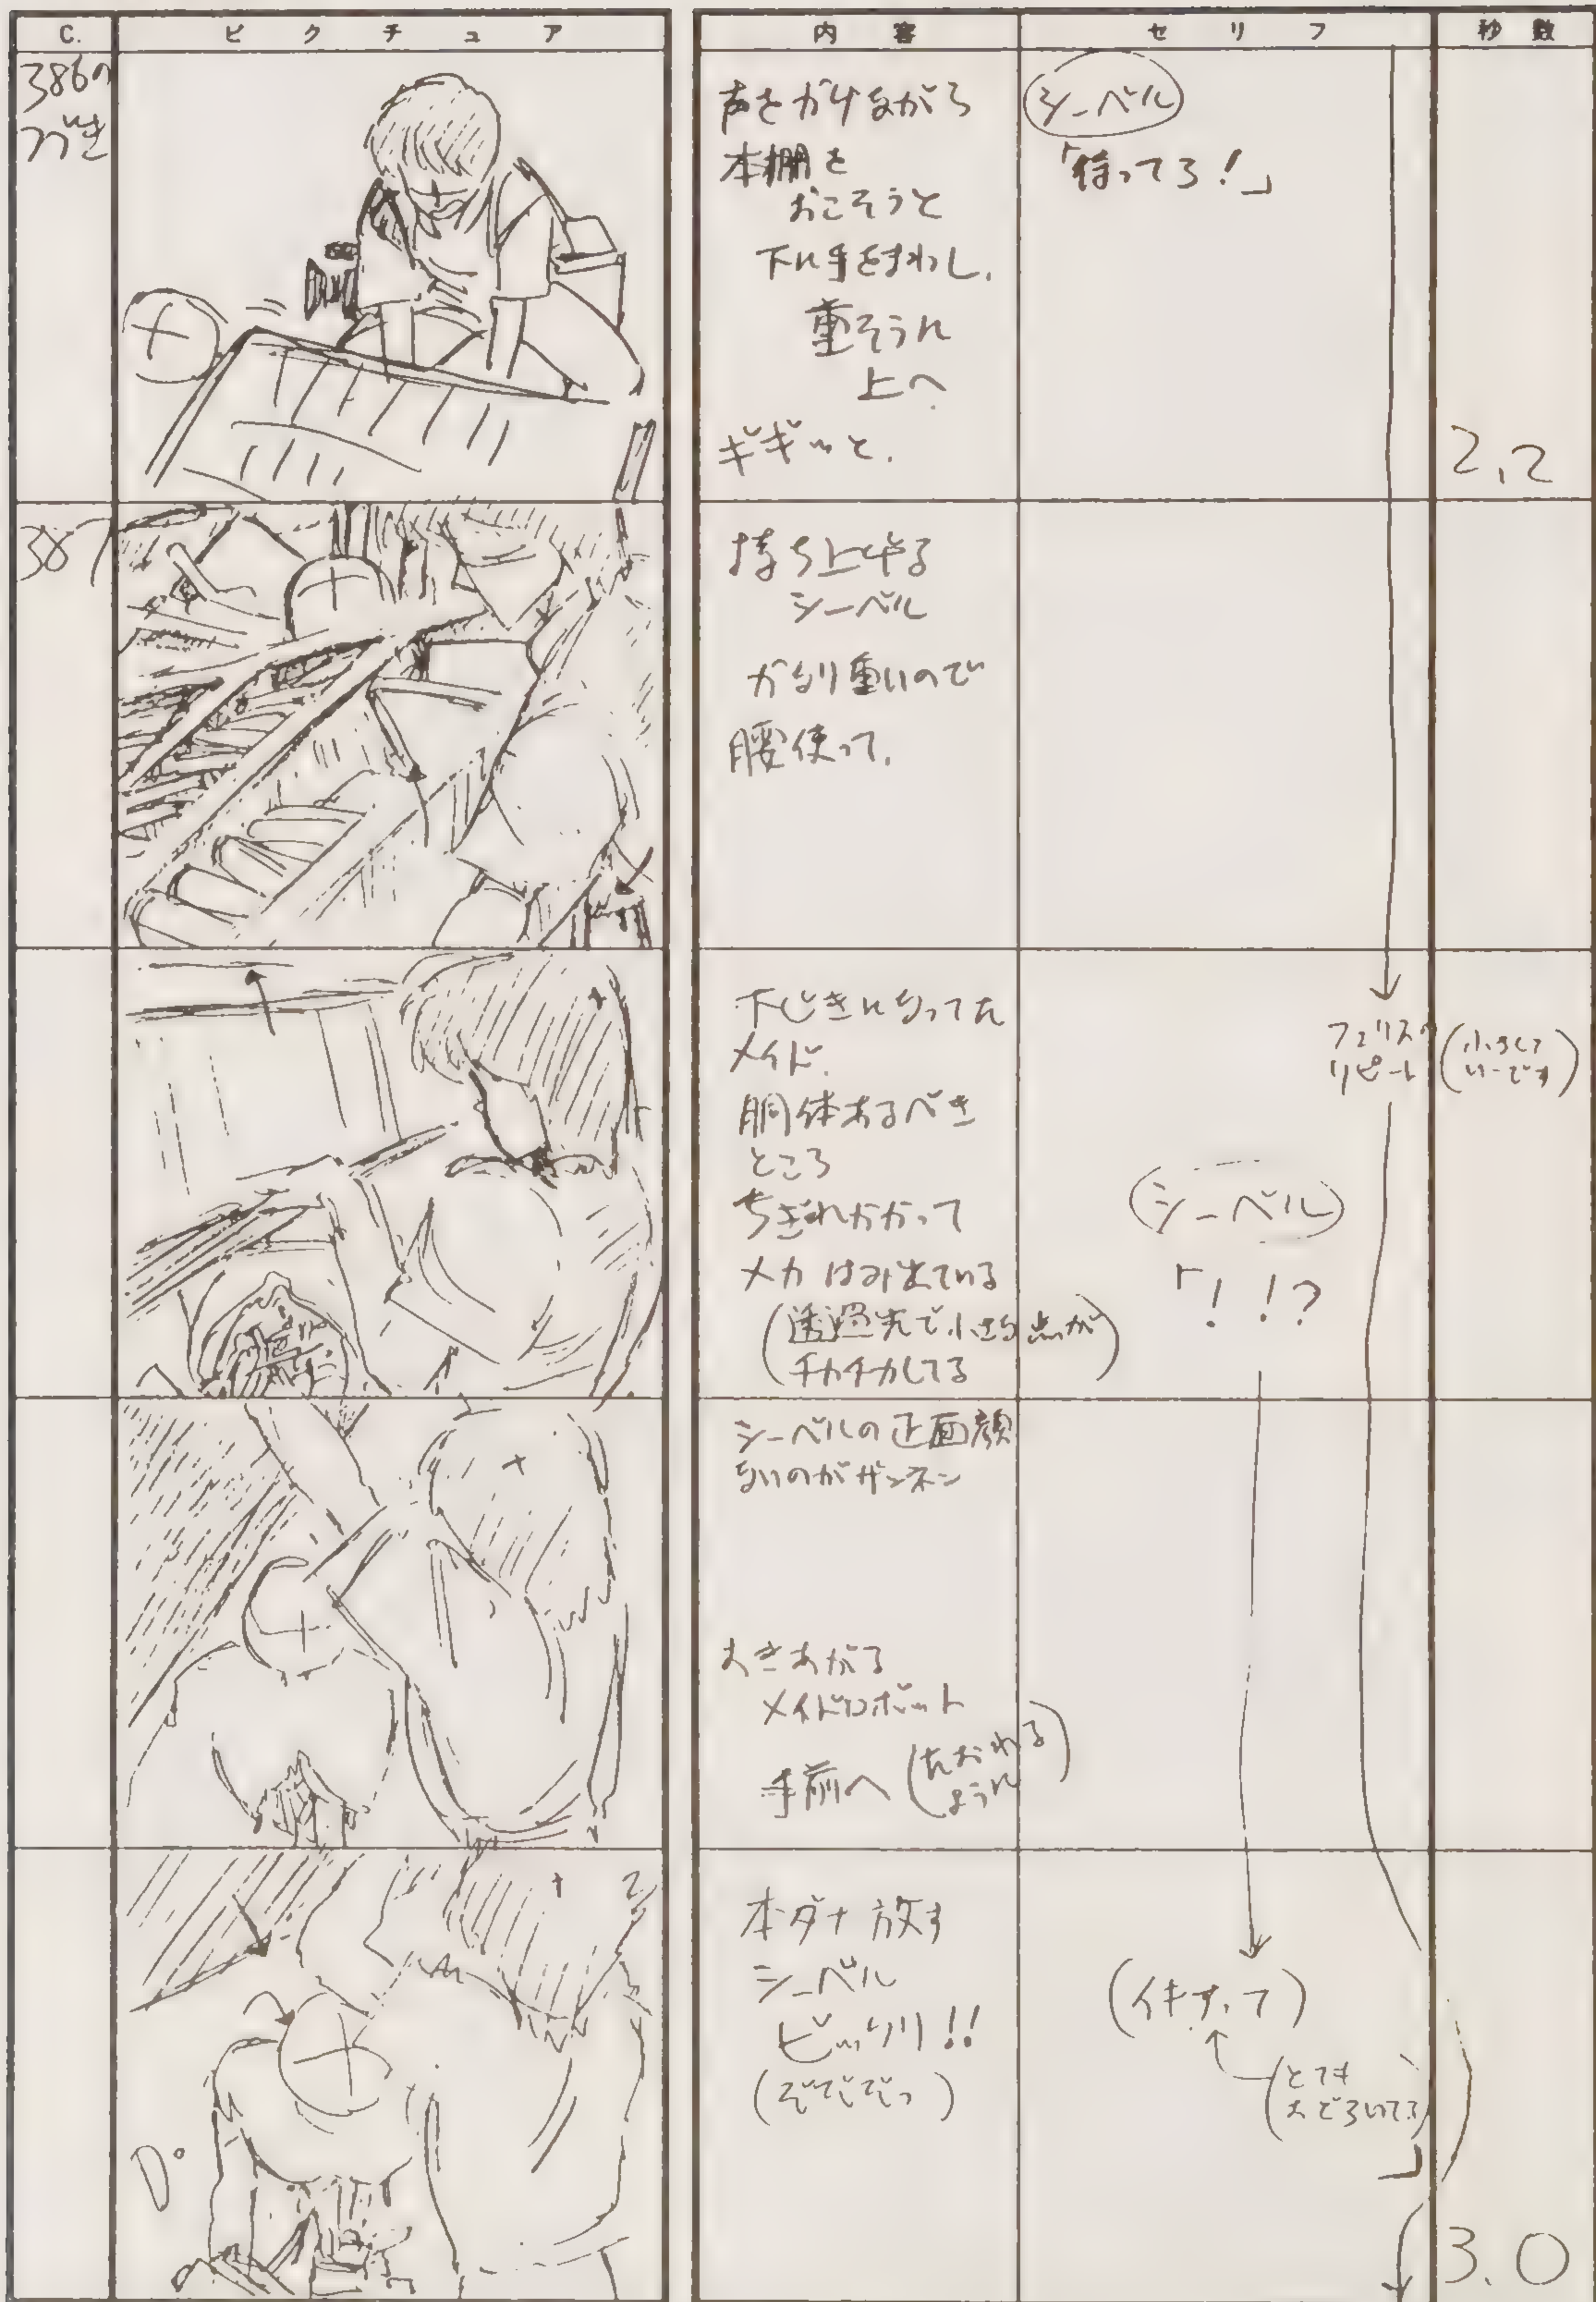 C.
ピクチュア
内容
セリフ
秒数
386の
つづき
声をかけながら
本棚を
おこそうと
下に手をまわし、
重そうに
上へ
ギギッと、
シーベル
「待ってろ!」
2.2
387
持ち上げる
シーベル
かなり重いので
腰使って、
下じきになってた
メイド、
胴体あるべき
ところ
ちぎれかかって
メカはみ出ている
(透過光で小さな点が
チカチカしてる)
フェリスの
リピート
(小さくて
いーです)
(シーベル)
「!!?
シーベルの正面顔
ないのがザンネン
おきあがる
メイドロボット
手前へ(たおれる
ように)
本ダナ放す
シーベル
ビックリ!!
(イキナ、フ)
(とても
おどろいてる)
」
3.0